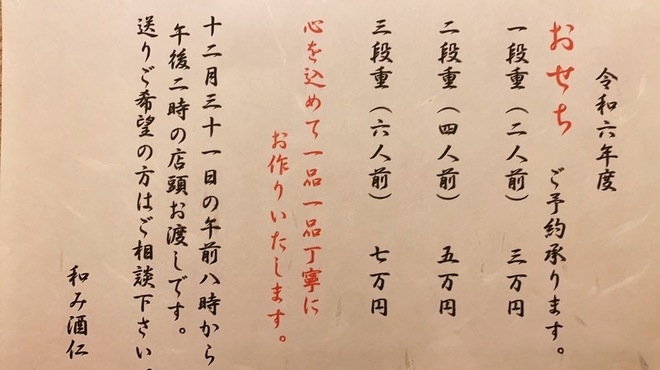 令和六年度
おせち ご予約承ります。
一段重（二人前） 三万円
二段重（四人前） 五万円
三段重（六人前） 七万円
心を込めて一品一品丁寧に
お作りいたします。
十二月三十一日の午前八時から
午後二時の店頭お渡しです。
送りご希望の方はご相談下さい。
和み酒仁